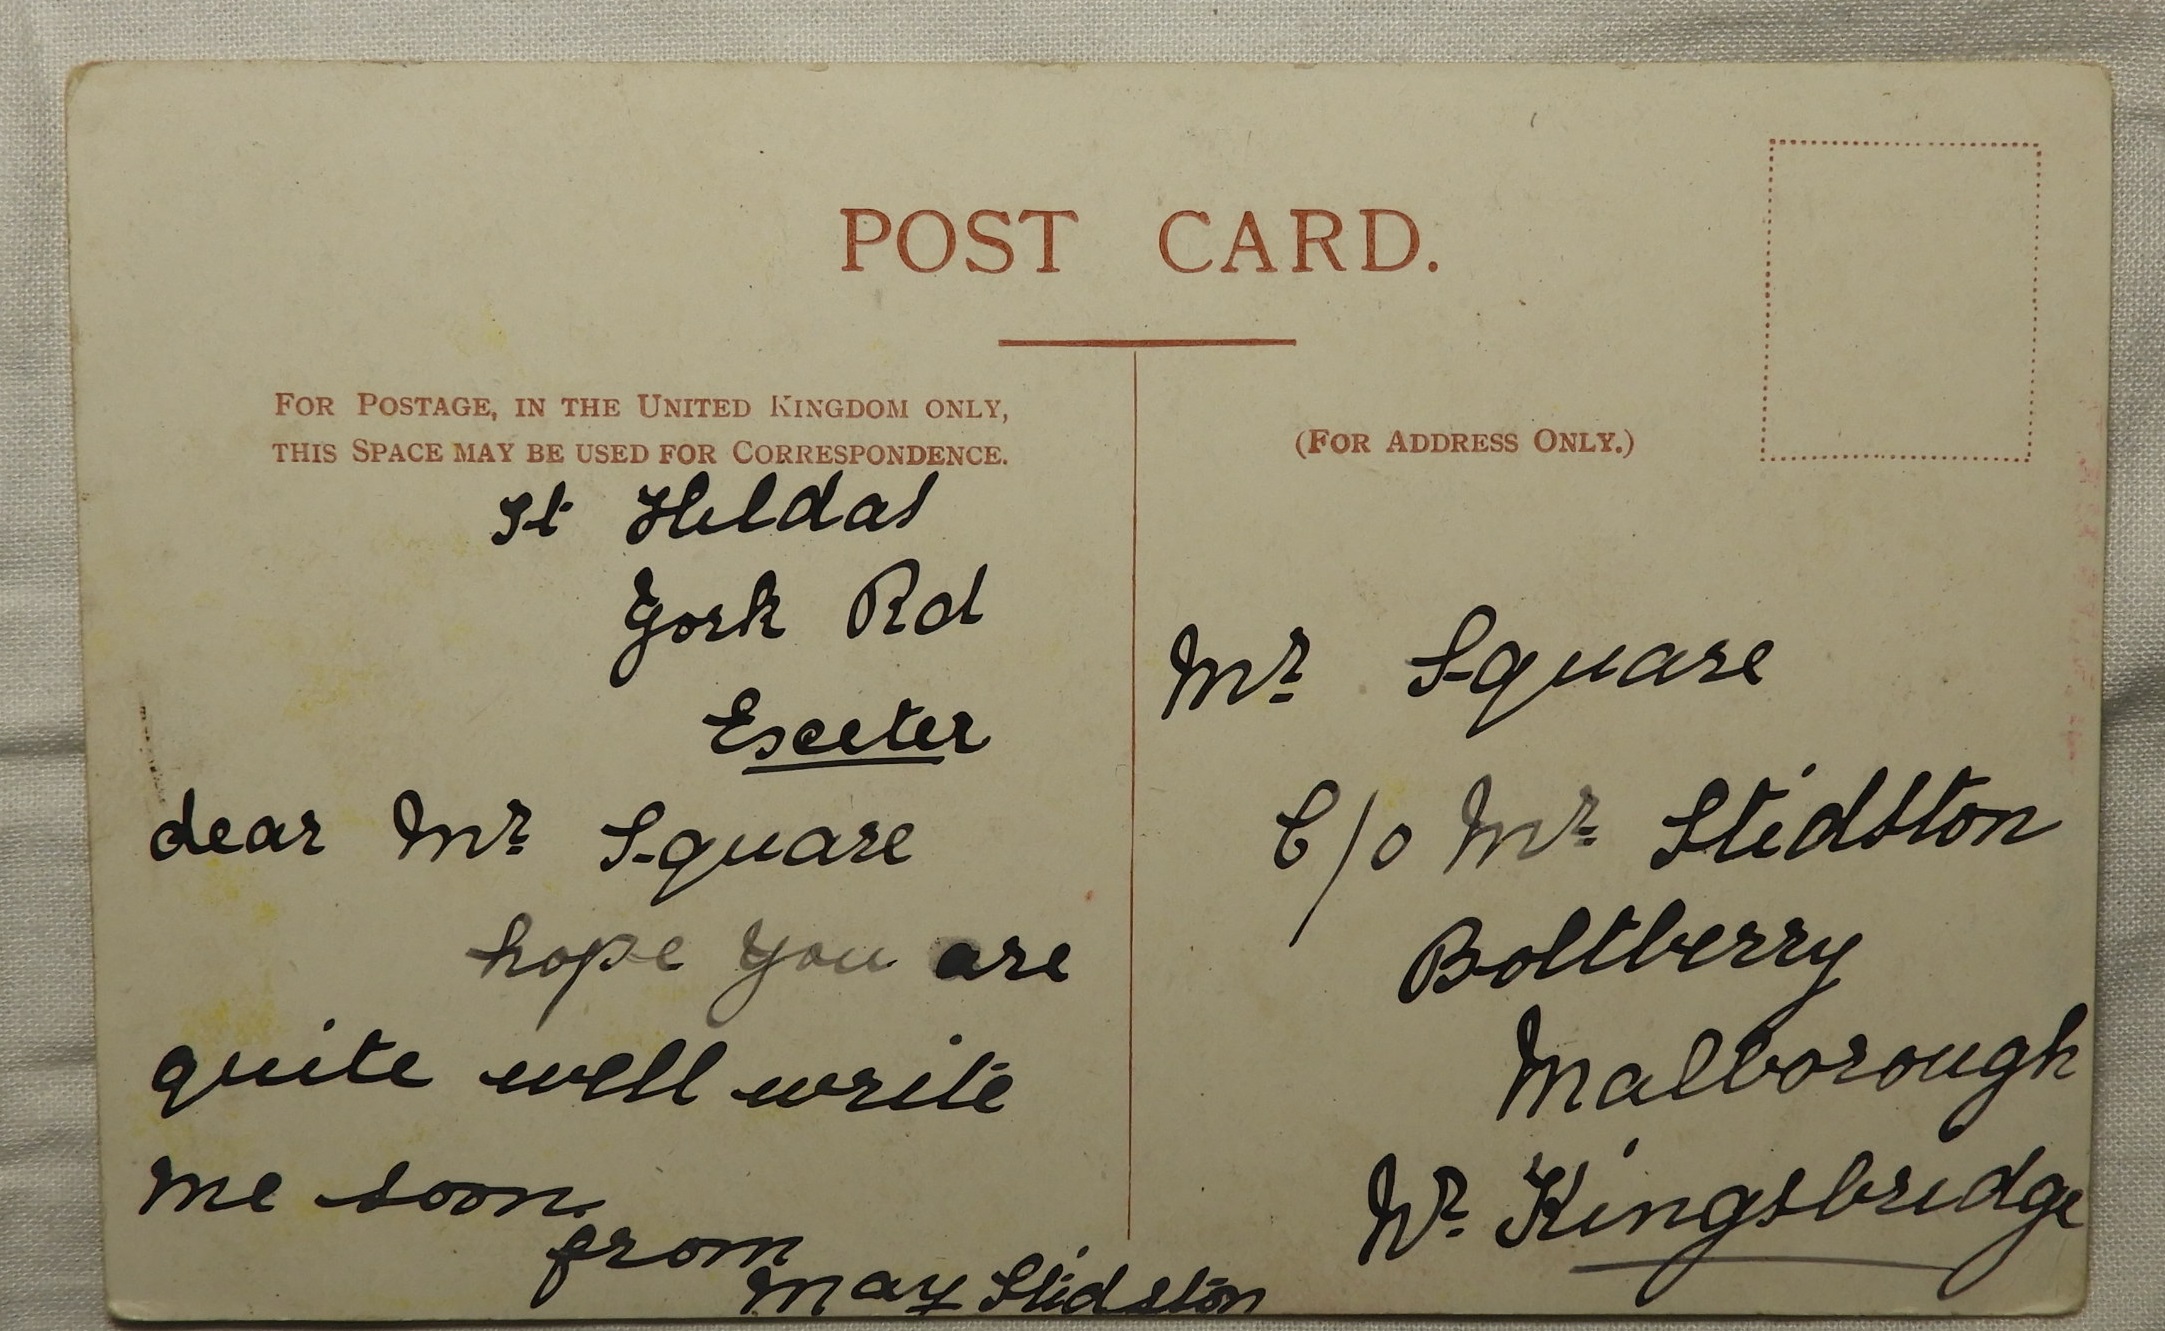 POST CARD.
FOR POSTAGE, IN THE UNITED KINGDOM ONLY,
THIS SPACE MAY BE USED FOR CORRESPONDENCE.
St Hildas
York Rd
Exeter
dear Mr Square
hope you are
quite well write
me soon.
from
May Stidston
(FOR ADDRESS ONLY.)
Mr Square
C/o Mr Stidston
Boltberry
Malborough
Nr. Kingsbridge